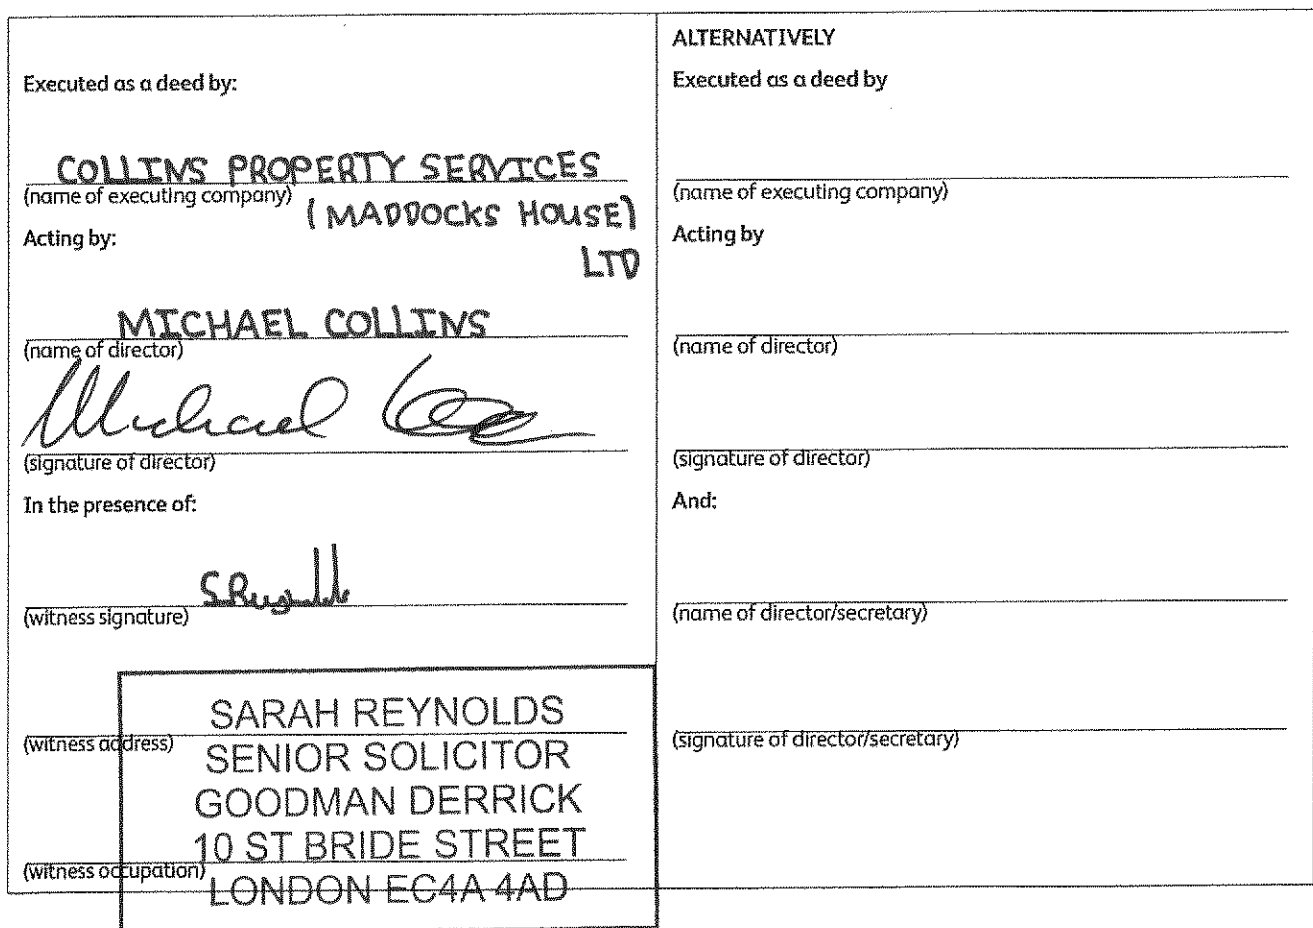 Executed as a deed by:
COLLINS PROPERTY SERVICES
(name of executing company)
(MADDOCKS HOUSE)
LTD
Acting by:
MICHAEL COLLINS
(name of director)
Michael
(signature of director)
In the presence of:
S.Reynolds
(witness signature)
SARAH REYNOLDS
(witness address)
SENIOR SOLICITOR
GOODMAN DERRICK
10 ST BRIDE STREET
(witness occupation)
LONDON EC4A 4AD
ALTERNATIVELY
Executed as a deed by
(name of executing company)
Acting by
(name of director)
(signature of director)
And:
(name of director/secretary)
(signature of director/secretary)